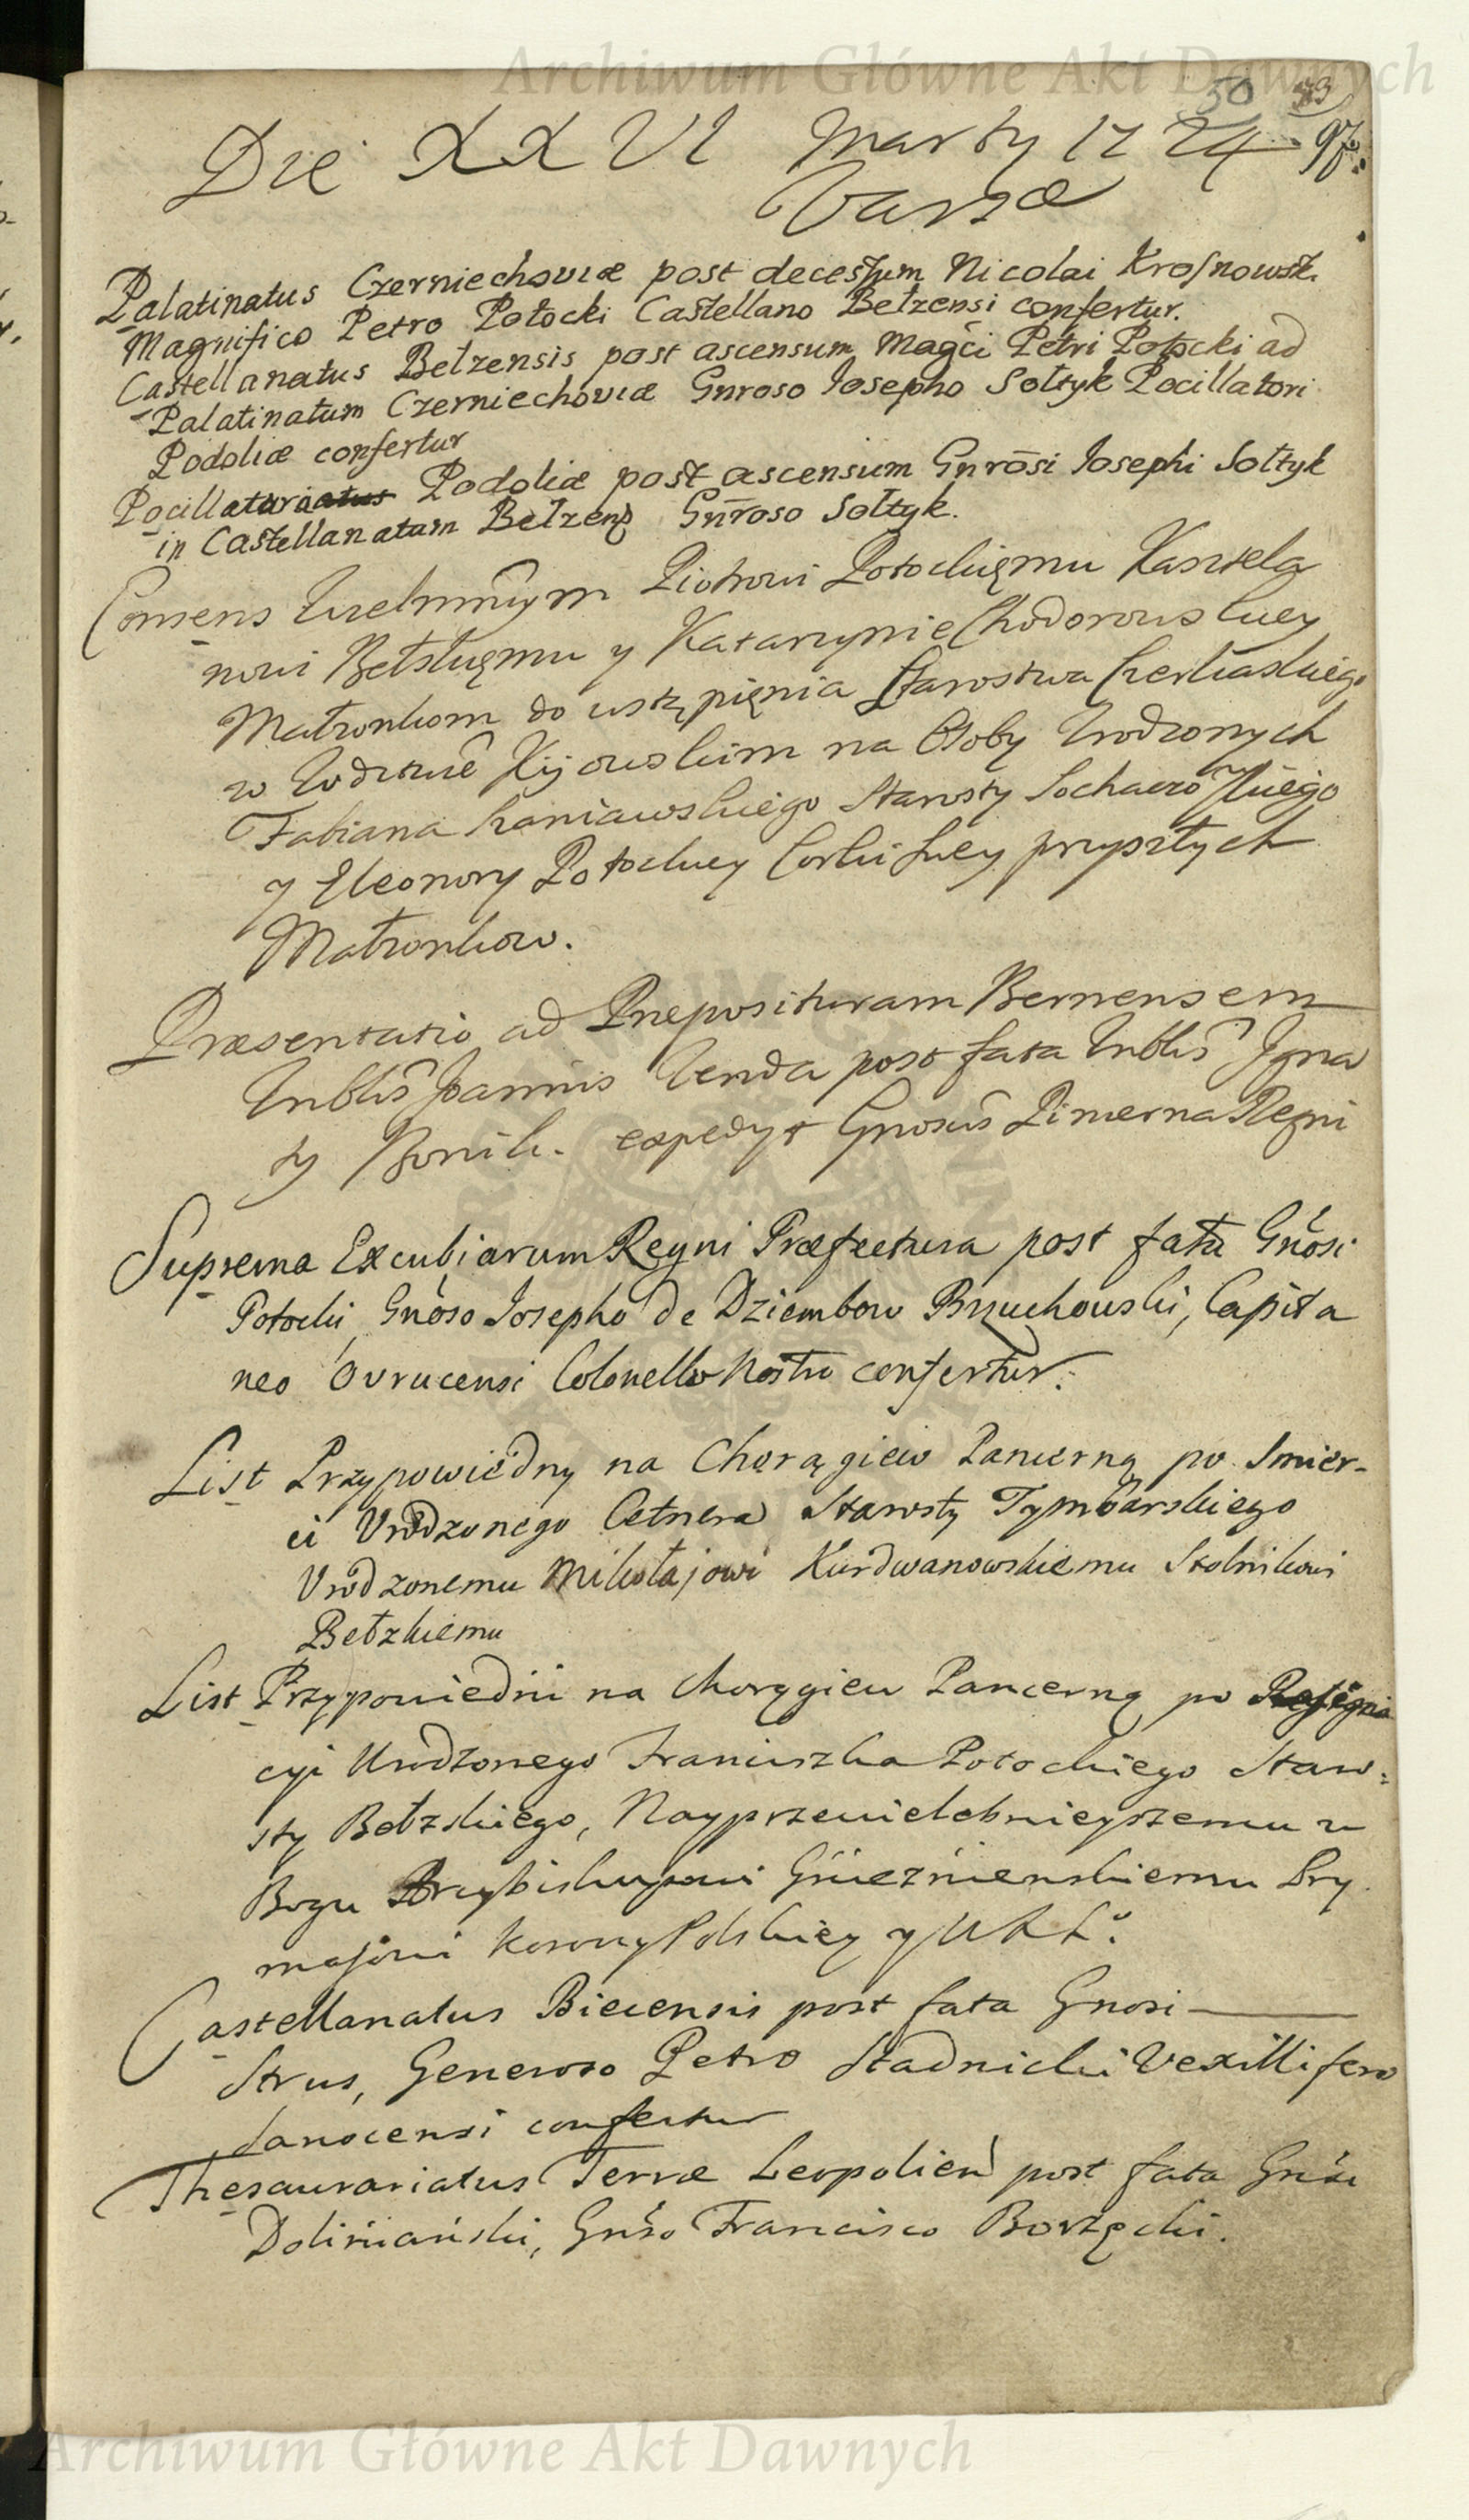 Archiwum Główne Akt Dawnych
50 93
Die XXVI Marty 1724 97.
Varsæ
Palatinatus Czerniechoviæ post decessum Nicolai Krosnowsk.
Magnifico Petro Potocki Castellano Bełzensi confertur.
Castellanatus Bełzensis post ascensum Magći Petri Potocki ad
Palatinatum Czerniechoviæ Gnroso Iosepho Sołtyk Pocillatori
Podoliæ confertur
Pocillatoriatus Podoliæ post ascensum Gnrōsi Iosephi Sołtyk
in Castellanatum Bełzens Gnr̄oso Sołtyk.
Consens Wielmnym Piotrowi Potockięmu Kasztela
nowi Bełskięmu y Katarzynie Chodorowskiey
Małzonkom do ustąpięnia Starostwa Czerkaskiego
w Wdztwe Kijowskim na Osoby Urodzonych
Fabiana Kaniawskiego Starosty Sochaczewskiego
y Eleonory Potockiey Corki Swey przyszłych
Małzonkow.
Præsentatio ad Præposituram Bernensem
Joannis post fata Igna
ty expedyt Gnosus Regni
Suprema Excubiarum Regni Præfectura post fata Gnosi
Potocki, Gnoso Iosepho de Dziembow Brzuchowski, Capita
neo Ovrucensi Colonello Nostro confertur.
List Przypowiedny na Chorągiew Pancerną po Smier-
ci Urodzonego Cetnera Starosty Tymbarskiego
Urodzonemu Mikołajowi Kurdwanowskiemu Stolnikowi
Bełzkiemu
List Przypowiedni na Chorągiew Pancerną po Resigna
cyi Urodzonego Franciszka Potockiego Staro:
sty Bełzkiego, Nayprzewielebnieyszemu w
Bogu Arcybiskupowi Gnieznienskiemu Pry
masowi Korony Polskiey y W X L.
Castellanatus Biecensis post fata Gnosi
Strus, Generoso Petro Stadnicki Vexillifero
Sanocensi confertur
Thesaurariatus Terræ Leopolien post fata Gnśi
Doliniański, Gnśo Francisco Borzęcki.
Archiwum Główne Akt Dawnych